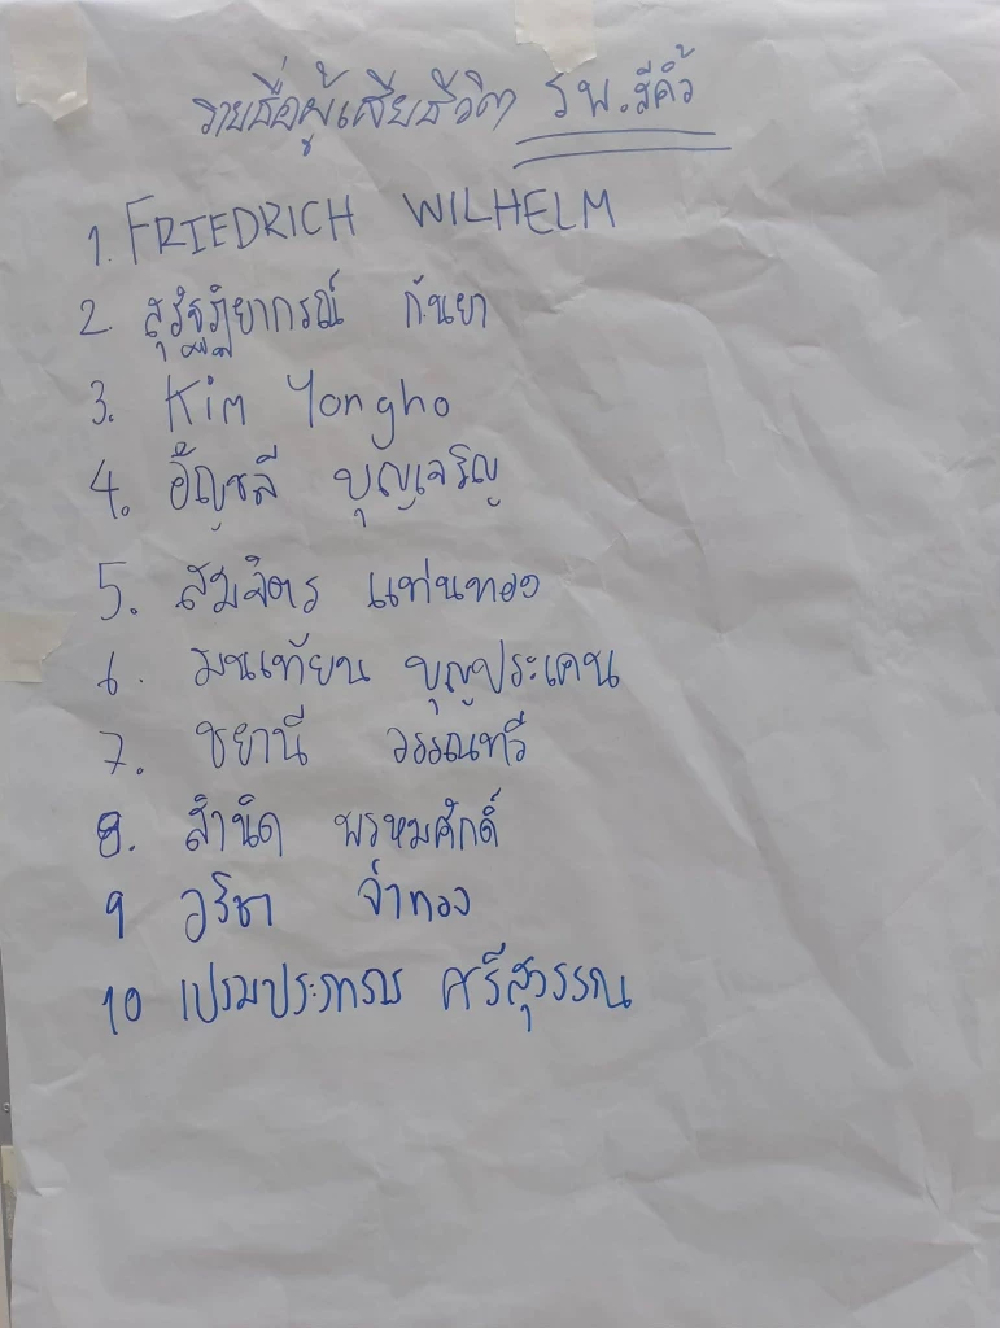 รายชื่อผู้เสียชีวิต รพ.สีคิ้ว
1. FRIEDRICH WILHELM
2. กันยา
3. Kim Yongho
4. อัญชลี บุญเจริญ
5. สมจิตร แท่นทอง
6. บุญประเคน
7. ชยานี วรรณทวี
8. สำนิต พรหมศักดิ์
9 อริชา จำทอง
10 เปรมประภากร ศรีสุวรรณ